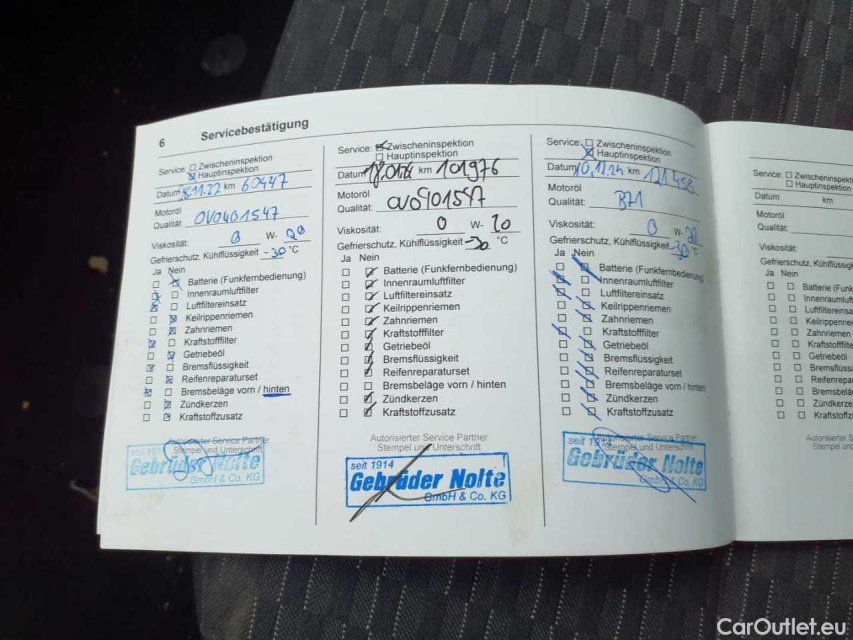 6 Servicebestätigung
Service: ☐ Zwischeninspektion
☒ Hauptinspektion
Datum 8.11.22 km 60447
Motoröl
Qualität: OVO401547
Viskosität: 0 W- 20
Gefrierschutz, Kühlflüssigkeit -30 °C
Ja Nein
Batterie (Funkfernbedienung)
Innenraumluftfilter
Luftfiltereinsatz
Keilrippenriemen
Zahnriemen
Kraftstofffilter
Getriebeöl
Bremsflüssigkeit
Reifenreparaturset
Bremsbeläge vorn / hinten
Zündkerzen
Kraftstoffzusatz
Autorisierter Service Partner
Stempel und Unterschrift
seit 1914
Gebrüder Nolte
GmbH & Co. KG
Service: ☒ Zwischeninspektion
☐ Hauptinspektion
Datum km 101976
Motoröl
Qualität: OVO401547
Viskosität: 0 W- 20
Gefrierschutz, Kühlflüssigkeit -30 °C
Ja Nein
Batterie (Funkfernbedienung)
Innenraumluftfilter
Luftfiltereinsatz
Keilrippenriemen
Zahnriemen
Kraftstofffilter
Getriebeöl
Bremsflüssigkeit
Reifenreparaturset
Bremsbeläge vorn / hinten
Zündkerzen
Kraftstoffzusatz
Autorisierter Service Partner
Stempel und Unterschrift
seit 1914
Gebrüder Nolte
GmbH & Co. KG
Service: ☐ Zwischeninspektion
☒ Hauptinspektion
Datum 10.12.24 km 121458
Motoröl
Qualität: B71
Viskosität: 0 W- 20
Gefrierschutz, Kühlflüssigkeit -30 °C
Ja Nein
Batterie (Funkfernbedienung)
Innenraumluftfilter
Luftfiltereinsatz
Keilrippenriemen
Zahnriemen
Kraftstofffilter
Getriebeöl
Bremsflüssigkeit
Reifenreparaturset
Bremsbeläge vorn / hinten
Zündkerzen
Kraftstoffzusatz
Autorisierter Service Partner
Stempel und Unterschrift
seit 1914
Gebrüder Nolte
GmbH & Co. KG
Service: ☐ Zwischeninspekt
☐ Hauptinspektion
Datum km
Motoröl
Qualität:
Viskosität:
Gefrierschutz, Kühlflüssig
Ja Nein
Batterie (Funk
Innenraumluft
Luftfiltereinsa
Keilrippenriem
Zahnriemen
Kraftstofffilte
Getriebeöl
Bremsflüssi
Reifenrepara
Bremsbeläge
Zündkerzen
Kraftstoffz
Autorisierter S
Stempel u
CarOutlet.eu